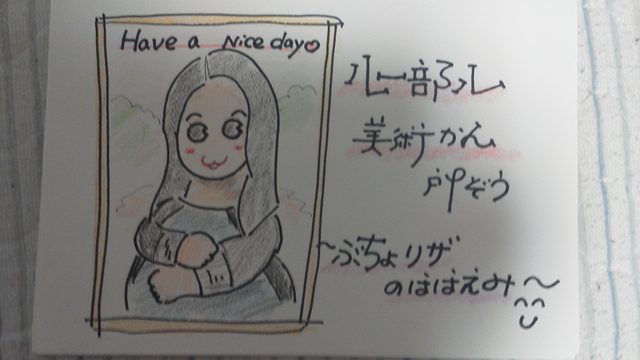 Have a Nice day
ルー部ル
美術かん
所ぞう
〜ぶちょリザ
のほほえみ〜